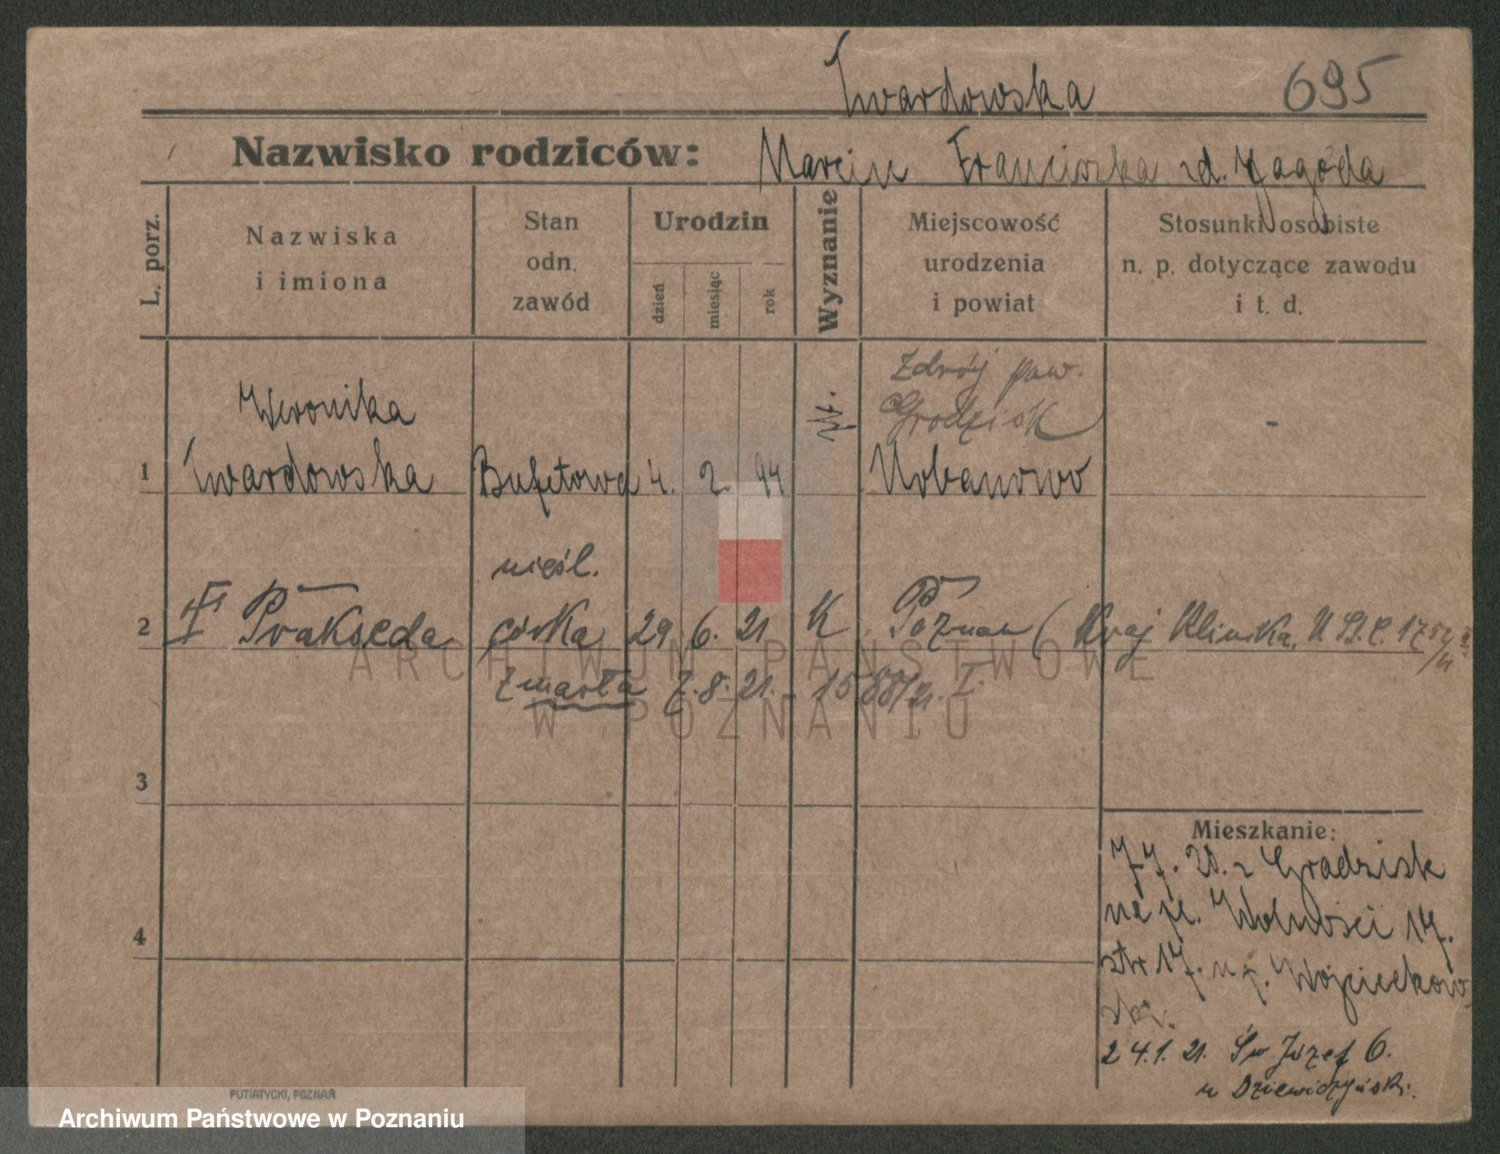 Twardowska 695
Nazwisko rodziców: Marcin Franciszka zd. Jagoda
L. porz.
Nazwiska
i imiona
Stan
odn.
zawód
Urodzin
dzień
miesiąc
rok
Wyznanie
Miejscowość
urodzenia
i powiat
Stosunki osobiste
n. p. dotyczące zawodu
i t. d.
Zdrój pow.
Grodzisk
Weronika
1 Twardowska Bufetowa 4. 2. 94 Urbanowo -
nieśl.
2 Prakseda córka 29 6. 21 K Poznań (Kraj Klinika, U.S.C.
zmarła 7. 8. 21. 1588/21. I.
3
Mieszkanie:
20. z Grodzisk
na pl. Wolności 17.
4
str 17. u p. Wojciechow
ska.
24.1.21. Św Józef 6.
u Dziewidzyńsk.
ARCHIWUM PAŃSTWOWE
W POZNANIU
PUTIATYCKI, POZNAŃ
Archiwum Państwowe w Poznaniu